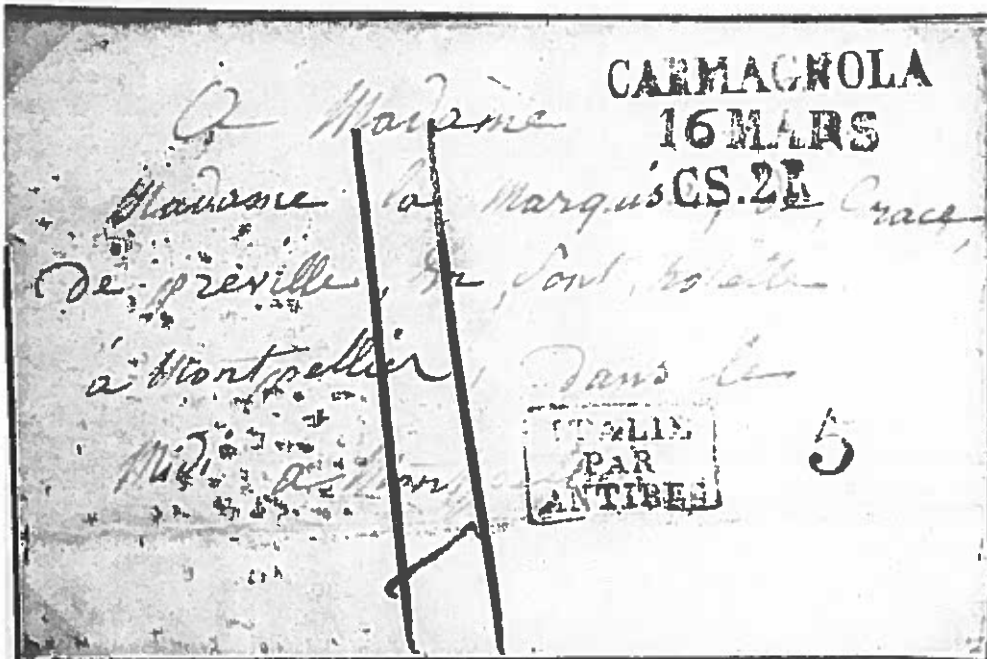 CARMAGNOLA
16 MARS
CS.2R
A Madame
Madame la Marquise, de Grace,
De preville, en, Sont,
à Montpellier, Dans le
Midi a
ITALIE
PAR
ANTIBES
5